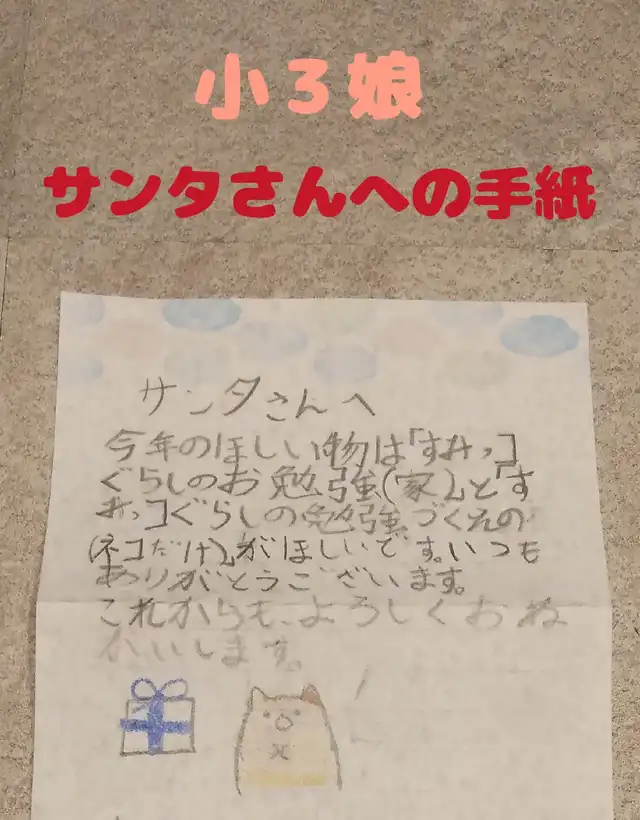 小3娘
サンタさんへの手紙
サンタさんへ
今年のほしい物は「すみっコ
ぐらしのお勉強(家)」と「す
みっコぐらしの勉強づくえの
(ネコだけ)」がほしいです。いつも
ありがとうございます。
これからも、よろしくおね
がいします。